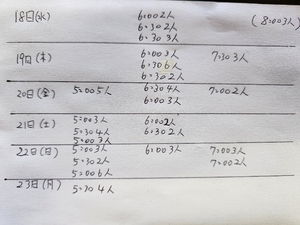 18日(水) 6:00 2人 (8:00 3人)
6:30 2人
6:30 3人
19日(木) 6:00 3人 7:30 3人
6:30 6人
6:30 2人
20日(金) 5:00 5人 6:30 4人 7:00 2人
6:00 3人
21日(土) 5:00 3人 6:00 2人
5:30 4人 6:30 2人
5:00 3人
22日(日) 5:00 3人 6:00 3人 7:00 3人
5:30 2人 7:00 2人
5:00 6人
23日(月) 5:30 4人